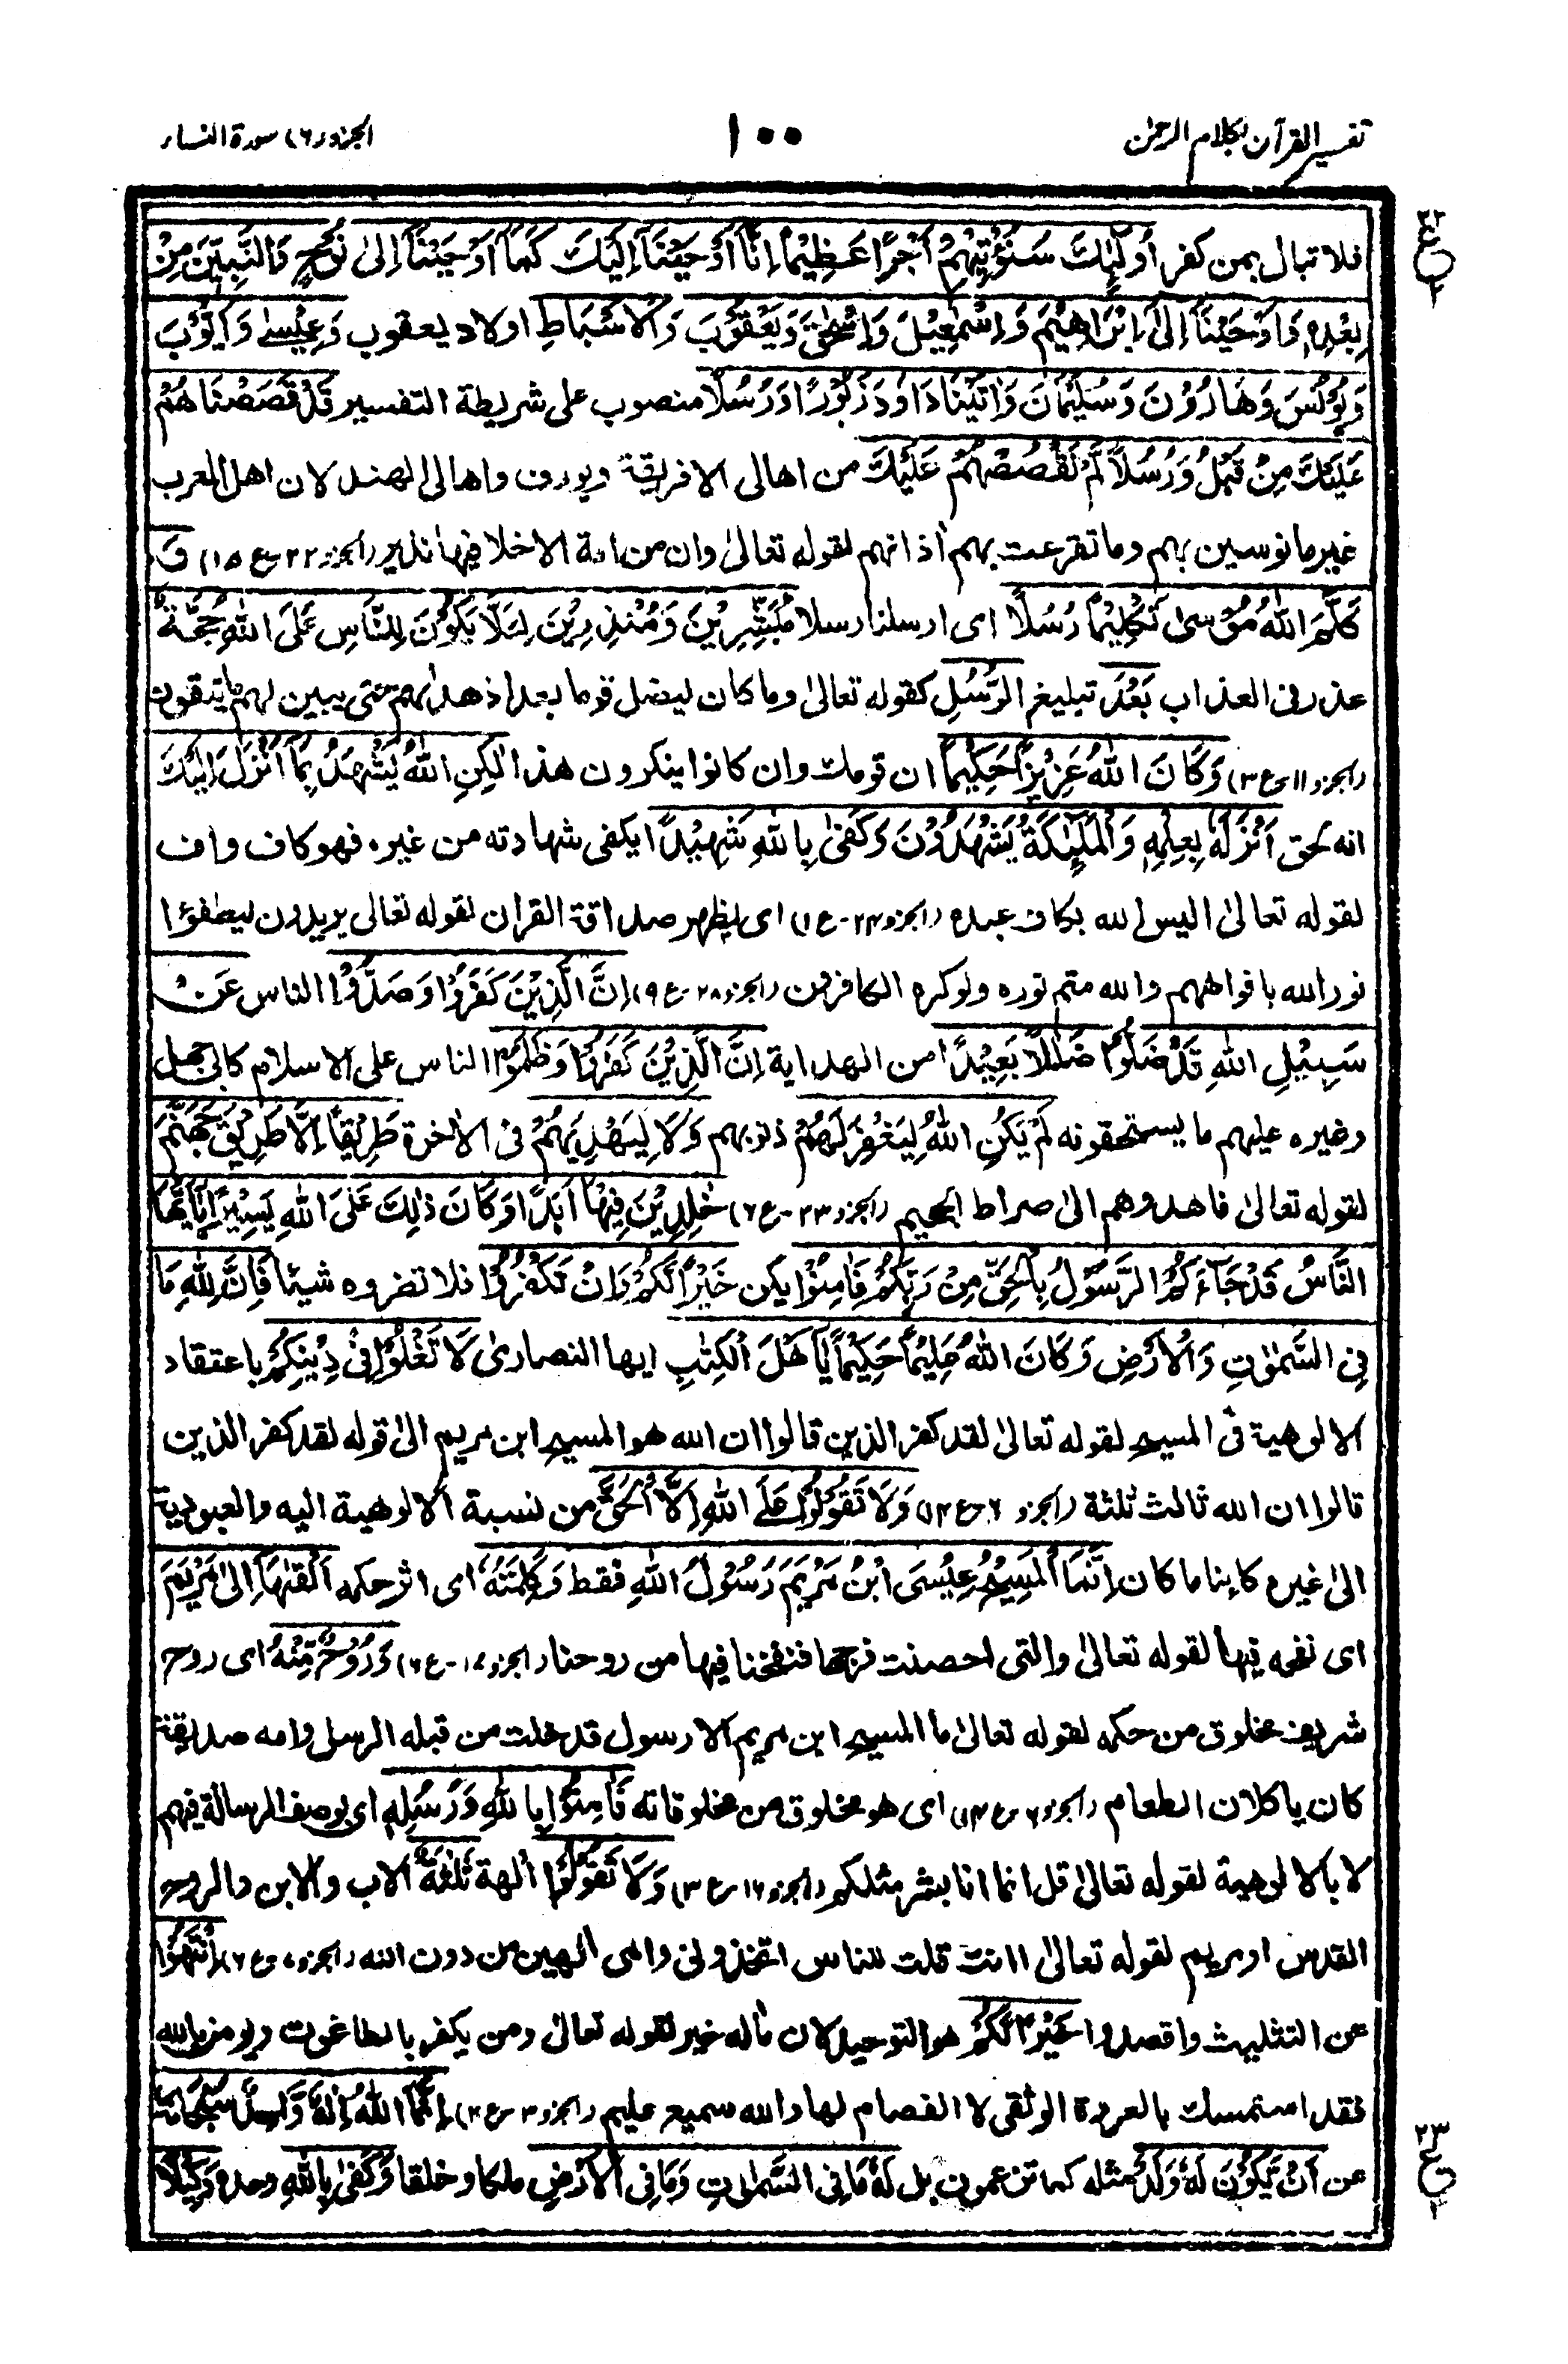 تفسير القرآن بكلام الرحمٰن ١٠٠ الجزو (٦) سورة النساء
فلا تبال بمن كفر اُولٰٓئِكَ سَنُؤْتِيْهِمْ اَجْرًا عَظِيْمًا اِنَّآ اَوْحَيْنَآ اِلَيْكَ كَمَآ اَوْحَيْنَآ اِلىٰ نُوْحٍ وَّالنَّبِيّٖنَ مِنْ
بَعْدِهٖ وَاَوْحَيْنَآ اِلىٰٓ اِبْرَاهِيْمَ وَاِسْمٰعِيْلَ وَاِسْحٰقَ وَيَعْقُوْبَ وَالْاَسْبَاطِ اولاد يعقوب وَعِيْسٰى وَاَيُّوْبَ
وَيُوْنُسَ وَهَارُوْنَ وَسُلَيْمَانَ وَاٰتَيْنَا دَاوٗدَ زَبُوْرًا وَرُسُلًا منصوب على شريطة التفسير قَدْ قَصَصْنَاهُمْ
عَلَيْكَ مِنْ قَبْلُ وَرُسُلًا لَّمْ نَقْصُصْهُمْ عَلَيْكَ من اهالى الافريقة ويورف واهالى الهند لان اهل العرب
غير مانوسين بهم وما تقرعت بهم اذانهم لقوله تعالىٰ وان من امة الا خلا فيها نذير (الجزو ٢٢ - ع ١٥) وَ
كَلَّمَ اللهُ مُوْسىٰ تَكْلِيْمًا رُسُلًا اى ارسلنا رسلا مُّبَشِّرِيْنَ وَمُنْذِرِيْنَ لِئَلَّا يَكُوْنَ لِلنَّاسِ عَلَى اللهِ حُجَّةٌ
عذر فى العذاب بَعْدَ تبليغ الرُّسُلِ كقوله تعالىٰ وما كان ليضل قوما بعد اذ هداهم حتى يبين لهم ما يتقون
(الجزو ١١ - ع ٣) وَكَانَ اللهُ عَزِيْزًا حَكِيْمًا ان قومك وان كانوا ينكرون هذا لٰكِنِ اللهُ يَشْهَدُ بِمَآ اَنْزَلَ اِلَيْكَ
انه لحق اَنْزَلَهٗ بِعِلْمِهٖ وَالْمَلٰٓئِكَةُ يَشْهَدُوْنَ وَكَفىٰ بِاللهِ شَهِيْدًا يكفى شهادته من غيره فهو كاف واف
لقوله تعالىٰ اليس الله بكاف عبده (الجزو ٢٤ - ع ١) اى ليظهر صداقة القران لقوله تعالى يريدون ليطفؤا
نور الله بافواههم والله متم نوره ولو كره الكافرون (الجزو ٢٨ - ع ٩) اِنَّ الَّذِيْنَ كَفَرُوْا وَصَدُّوْا الناس عَنْ
سَبِيْلِ اللهِ قَدْ ضَلُّوْا ضَلٰلًا بَعِيْدًا من الهداية اِنَّ الَّذِيْنَ كَفَرُوْا وَظَلَمُوْا الناس على الاسلام كابى جهل
وغيره عليهم ما يستحقونه لَمْ يَكُنِ اللهُ لِيَغْفِرَ لَهُمْ ذنوبهم وَلَا لِيَهْدِيَهُمْ فى الاخرة طَرِيْقًا اِلَّا طَرِيْقَ جَهَنَّمَ
لقوله تعالىٰ فاهدوهم الىٰ صراط الجحيم (الجزو ٢٣ - ع ٦) خٰلِدِيْنَ فِيْهَآ اَبَدًا وَكَانَ ذٰلِكَ عَلَى اللهِ يَسِيْرًا يٰٓاَيُّهَا
النَّاسُ قَدْ جَآءَكُمُ الرَّسُوْلُ بِالْحَقِّ مِنْ رَبِّكُمْ فَاٰمِنُوْا يكن خَيْرًا لَّكُمْ وَاِنْ تَكْفُرُوْا فلا تضروه شيئا فَاِنَّ لِلّٰهِ مَا
فِى السَّمٰوٰتِ وَالْاَرْضِ وَكَانَ اللهُ عَلِيْمًا حَكِيْمًا يٰٓاَهْلَ الْكِتٰبِ ايها النصارىٰ لَا تَغْلُوْا فِىْ دِيْنِكُمْ باعتقاد
الالوهية فى المسيح لقوله تعالىٰ لقد كفر الذين قالوا ان الله هو المسيح ابن مريم الىٰ قوله لقد كفر الذين
قالوا ان الله ثالث ثلثة (الجزو ٦ - ع ١٤) وَلَا تَقُوْلُوْا عَلَى اللهِ اِلَّا الْحَقَّ من نسبة الالوهية اليه والعبودية
الىٰ غيره كاينا ما كان اِنَّمَا الْمَسِيْحُ عِيْسَى ابْنُ مَرْيَمَ رَسُوْلُ اللهِ فقط وَكَلِمَتُهٗ اى اثر حكمه اَلْقٰهَآ اِلىٰ مَرْيَمَ
اى نفخه فيها لقوله تعالىٰ والتى احصنت فرجها فنفخنا فيها من روحنا (الجزو ١٧ - ع ٦) وَرُوْحٌ مِّنْهُ اى روح
شريف مخلوق من حكمه لقوله تعالىٰ ما المسيح ابن مريم الا رسول قد خلت من قبله الرسل وامه صديقة
كان ياكلان الطعام (الجزو ٦ - ع ١٤) اى هو مخلوق من مخلوقاته فَاٰمِنُوْا بِاللهِ وَرُسُلِهٖ اى بوصف الرسالة فيهم
لا بالالوهية لقوله تعالىٰ قل انما انا بشر مثلكم (الجزو ١٦ - ع ٣) وَلَا تَقُوْلُوْا اٰلهة ثَلٰثَةٌ الاب والابن والروح
القدس او مريم لقوله تعالىٰ اانت قلت للناس اتخذونى وامى الٰهين من دون الله (الجزو ٧ - ع ٦) اِنْتَهُوْا
عن التثليث واقصدوا خَيْرًا لَّكُمْ هو التوحيد لان ماله خير لقوله تعالىٰ ومن يكفر بالطاغوت ويومن بالله
فقد استمسك بالعروة الوثقى لا انفصام لها والله سميع عليم (الجزو ٣ - ع ٢) اِنَّمَا اللهُ اِلٰهٌ وَّاحِدٌ سُبْحَانَهٗ
عن اَنْ يَّكُوْنَ لَهٗ وَلَدٌ مثله كما تزعمون بل لَهٗ مَا فِى السَّمٰوٰتِ وَمَا فِى الْاَرْضِ ملكا وخلقا وَكَفىٰ بِاللهِ وحده وَكِيْلًا